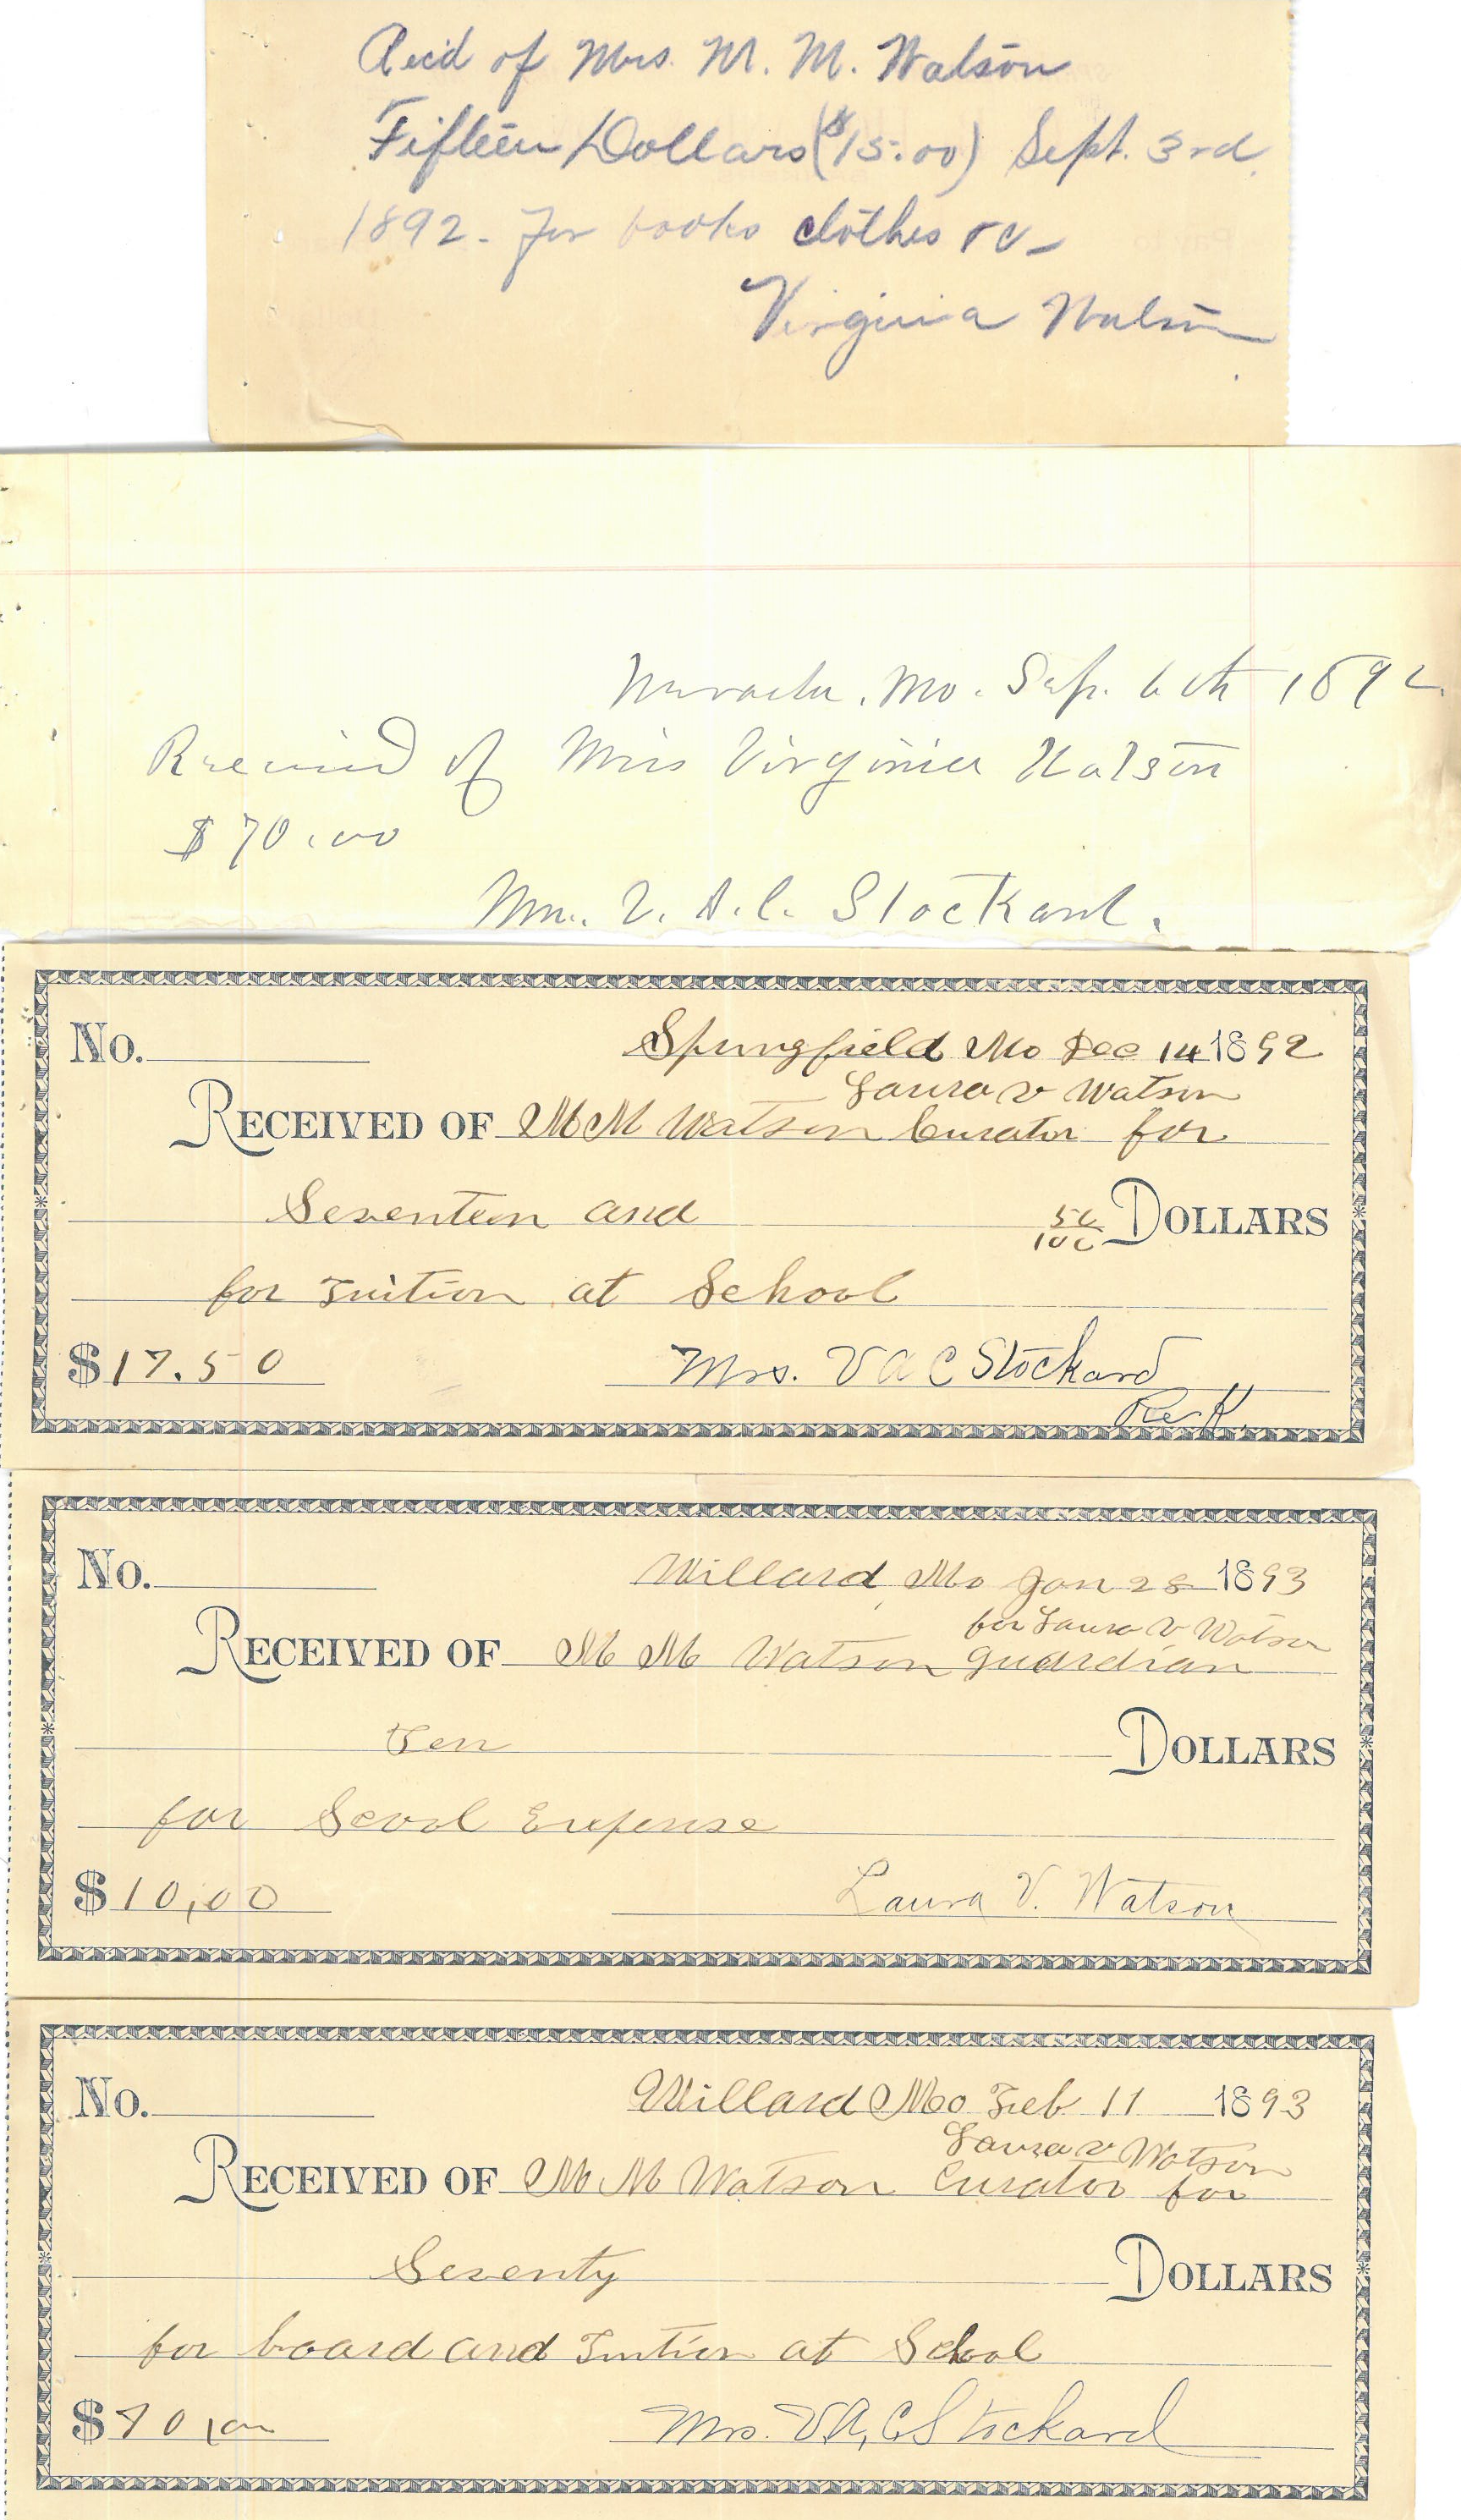 Rec'd of Mrs. M. M. Watson
Fifteen Dollars ($15.00) Sept. 3rd.
1892. For books clothes &c-
Virginia Watson
Nevada, Mo. Sep. 6th 1892.
Received of Miss Virginia Watson
$70.00
Mrs. V. A. C. Stockard.
No. Springfield Mo Dec 14 1892
Laura V Watson
RECEIVED OF M M Watson Curator for
Seventeen and 50/100 DOLLARS
for Tuition at School
$17.50 Mrs. V A C Stockard
No. Willard, Mo Jan 28 1893
for Laura V Watson
RECEIVED OF M M Watson guardian
Ten DOLLARS
for Scool Expense
$10,00 Laura V. Watson
No. Willard Mo Feb 11 1893
Laura V Watson
RECEIVED OF M M Watson Curator for
Seventy DOLLARS
for board and Tuition at School
$70,00 Mrs. V A, C Stockard